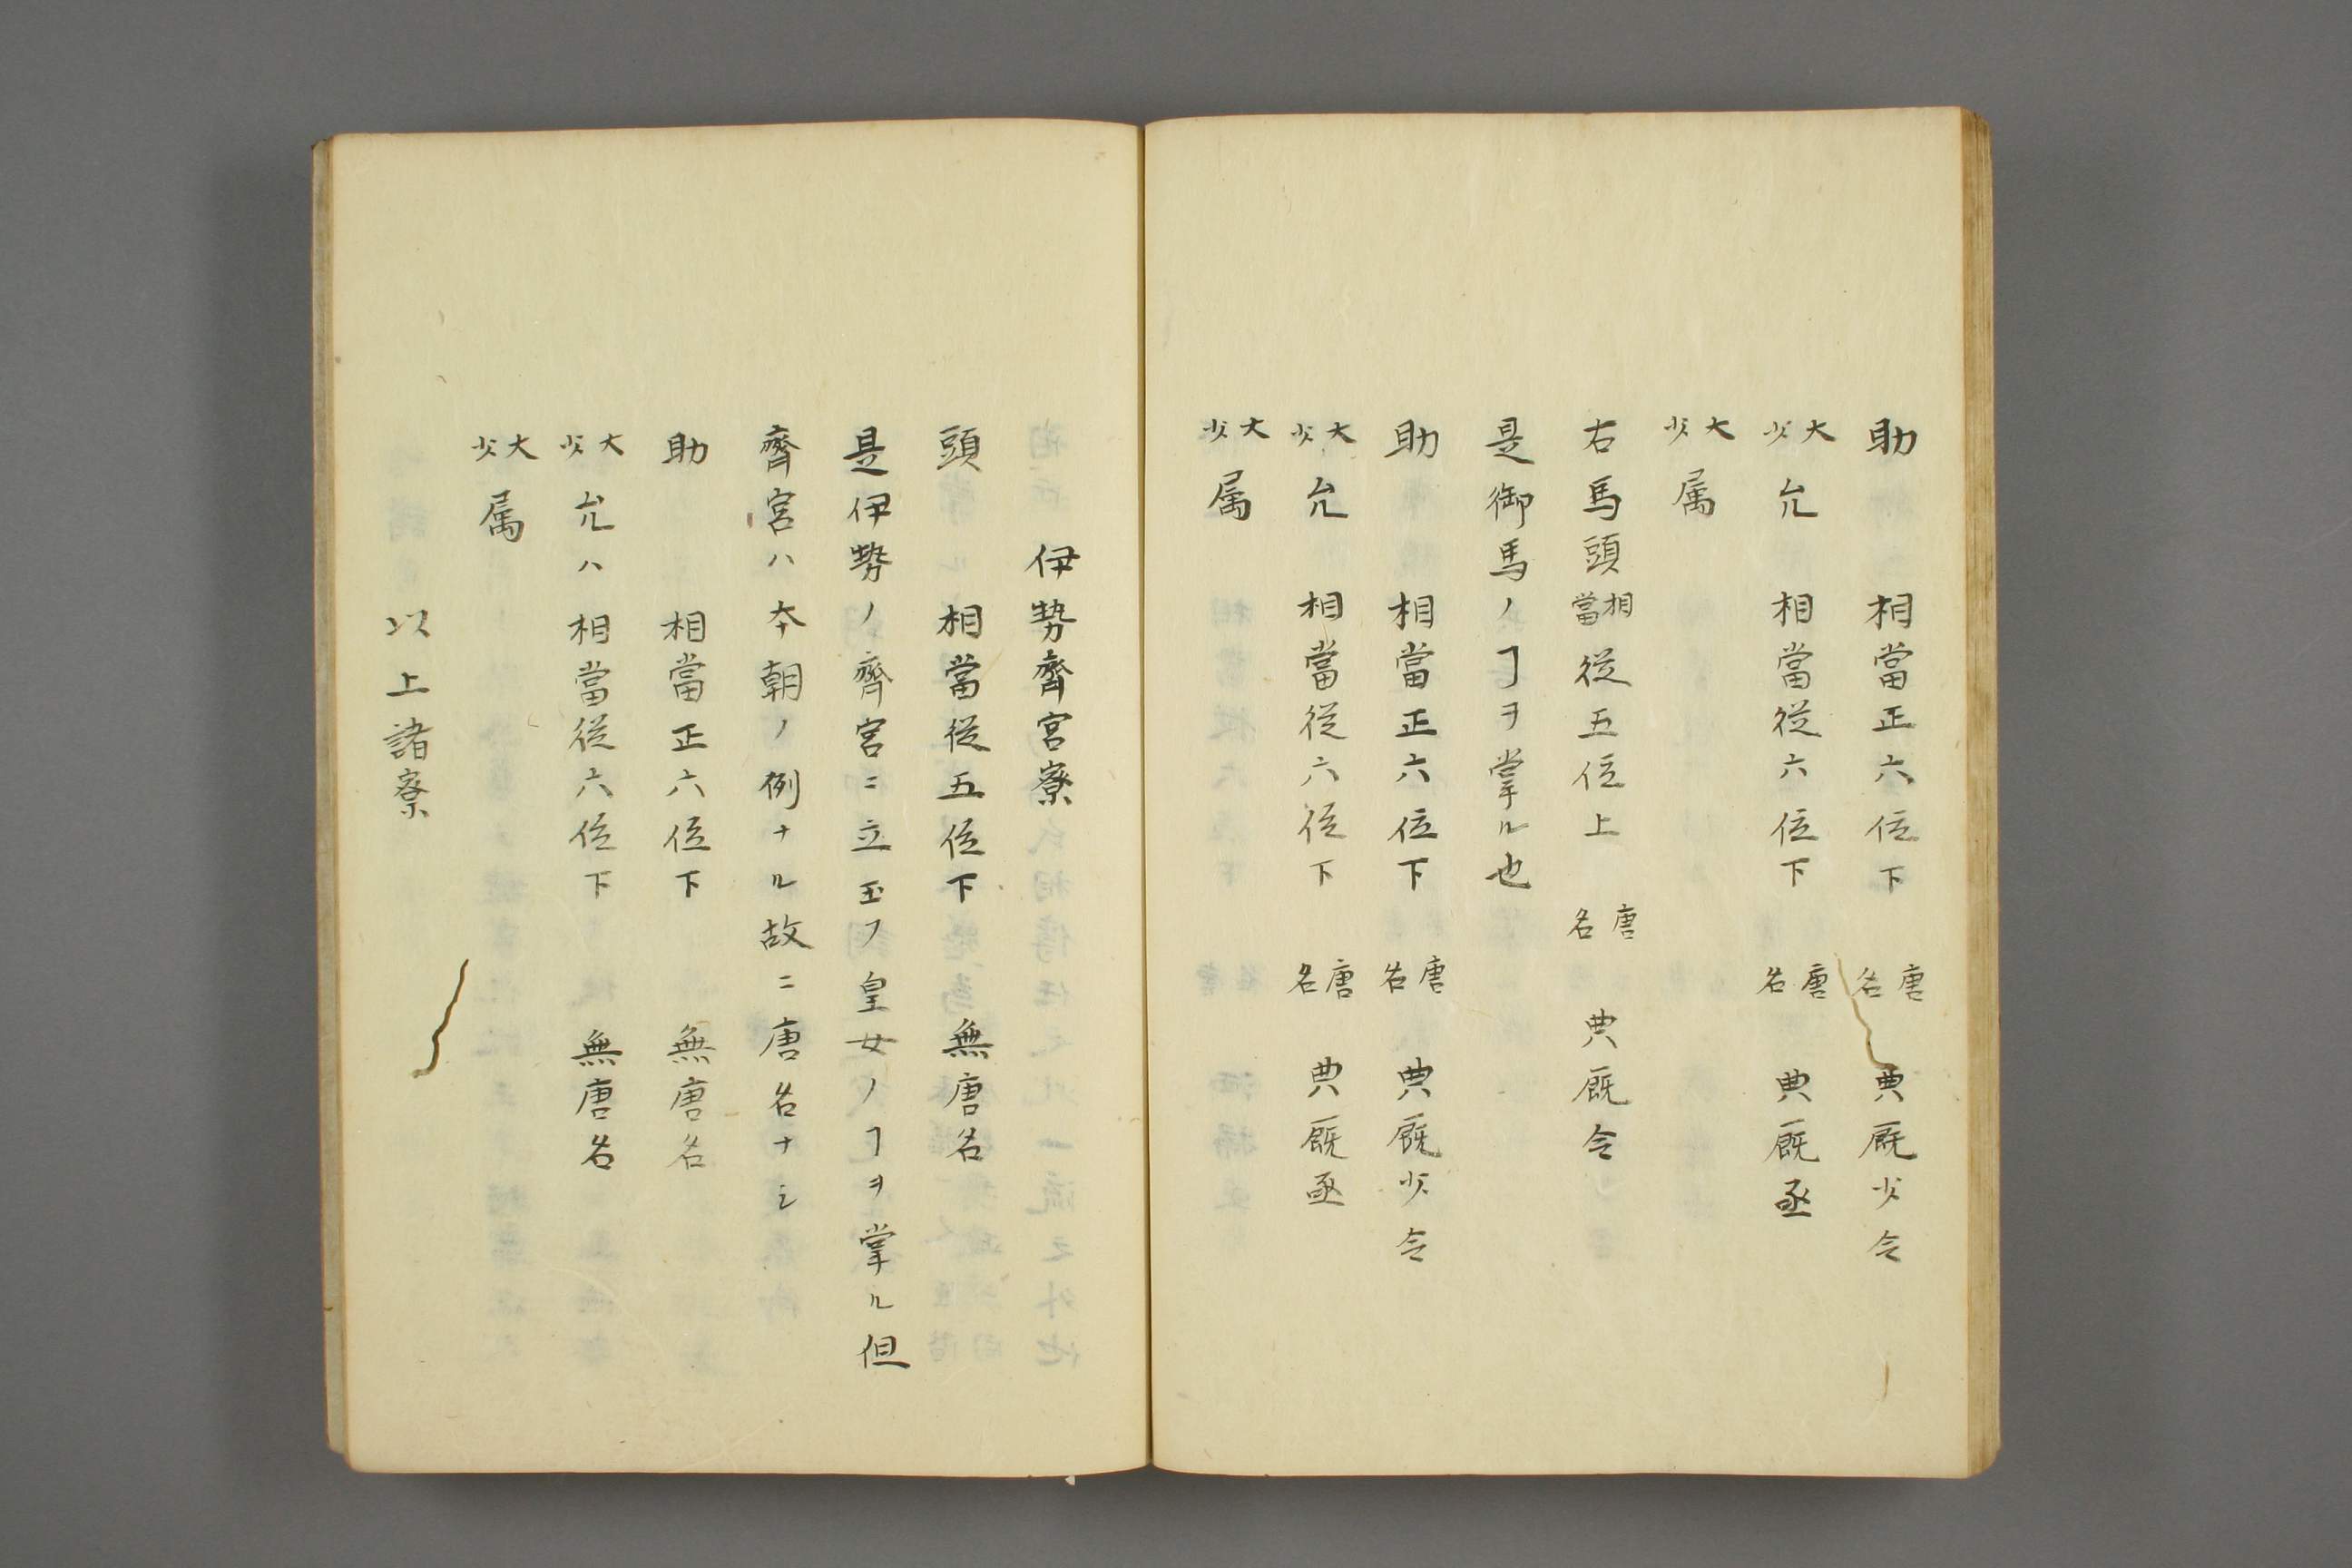 助 相當正六位下 唐名 典厩少令
大少允 相當従六位下 唐名 典厩丞
大少属
右馬頭相當従五位上 唐名 典厩令
是御馬ノヿヲ掌ル也
助 相當正六位下 唐名 典厩少令
大少允 相當従六位下 唐名 典厩丞
大少属
伊勢齊宮寮
頭 相當従五位下 無唐名
是伊勢ノ齊宮ニ立玉フ皇女ノヿヲ掌ル但
齊宮ハ本朝ノ例ナル故ニ唐名ナシ
助 相當正六位下 無唐名
大少允ハ相當従六位下 無唐名
大少属
以上諸寮